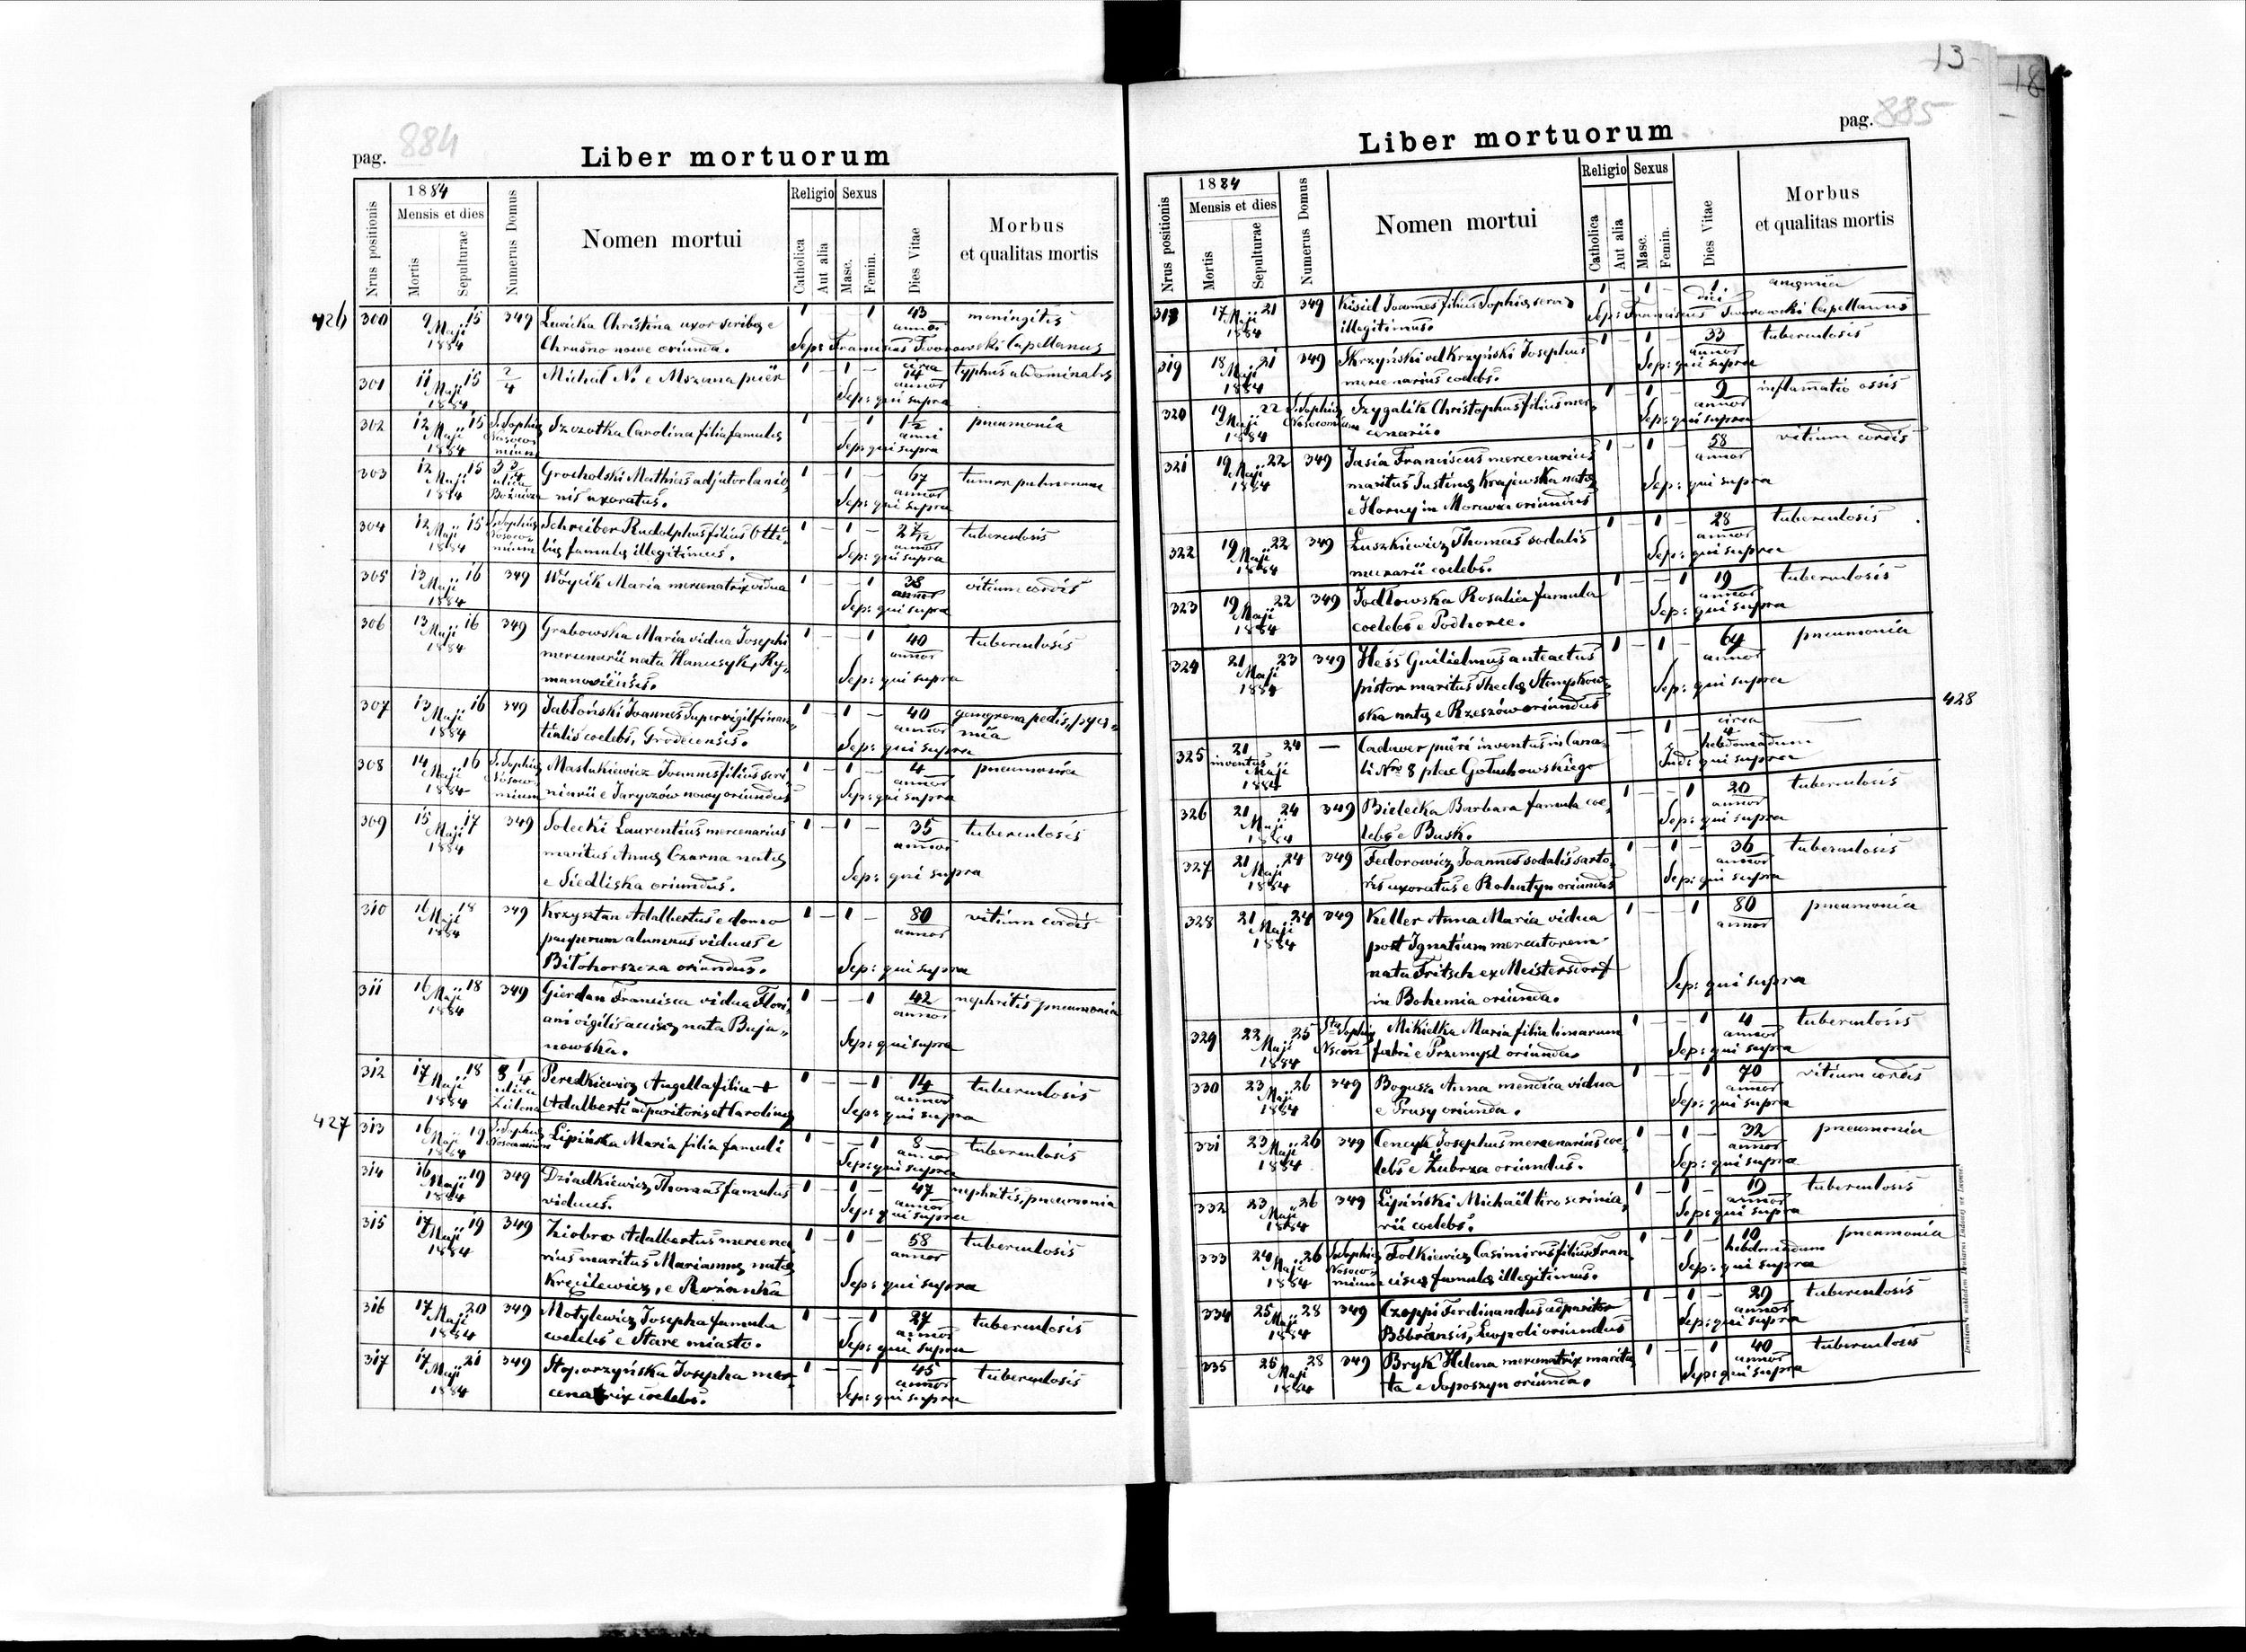 13
18
pag. 884
Liber mortuorum
1884
Mensis et dies
Religio Sexus
Nrus positionis
Mortis
Sepulturae
Numerus Domus
Nomen mortui
Catholica
Aut alia
Masc.
Femin.
Dies Vitae
Morbus
et qualitas mortis
426 300 9 Maji 15 349 Christina uxor scribæ e 1 - - 1 43 meningitis
1884 nowe oriunda. annor
Sep: Franciscus Tworowski Capellanus
301 11 Maji 15 2/4 Michał N. e Mszana puer 1 - 1 - circa 14 typhus abdominalis
1884 annor
Sep: qui supra
302 12 Maji 15 S. Sophiæ Szczotka Carolina filia famulæ 1 - 1 1/2 pneumonia
1884 Nosocomium anni
Sep: qui supra
303 12 Maji 15 3 3/4 Grocholski Mathias adjutor lanio, 1 - 1 - 67 tumor pulmonum
1884 ulica Bożnicza nis uxoratus. annor
Sep: qui supra
304 12 Maji 15 S. Sophiæ Schreiber Rudolphus filius Otti, 1 - 1 - 2 7/12 tuberculosis
1884 Nosocomium liæ famulæ illegitimus. annor
Sep: qui supra
305 13 Maji 16 349 Wóycik Maria mercenatrix vidua 1 - - 1 38 vitium cordis
1884 annor
Sep: qui supra
306 13 Maji 16 349 Grabowska Maria vidua Josephi 1 - - 1 40 tuberculosis
1884 mercenarii nata Hanusyk, Ry, annor
manoviensis. Sep: qui supra
307 13 Maji 16 349 Jabłoński Joannes supervigil finan, 1 - 1 - 40 gangrena pedis, pyæ,
1884 tialis coelebs, Grodecensis. annor mia
Sep: qui supra
308 14 Maji 16 S. Sophiæ Maslukiewicz Joannes filius scri 1 - 1 - 4 pneumonia
1884 Nosocomium niarii e Jaryczów nowy oriundus annor
Sep: qui supra
309 15 Maji 17 349 Solecki Laurentius mercenarius 1 - 1 - 35 tuberculosis
1884 maritus Annæ Czarna natæ annor
e Siedliska oriundus. Sep: qui supra
310 16 Maji 18 349 Krzysztan Adalbertus e domo 1 - 1 - 80 vitium cordis
1884 pauperum alumnus viduus e annor
Biłohorszcza oriundus. Sep: qui supra
311 16 Maji 18 349 Gierdan Francisca vidua Flori, 1 - - 1 42 nephritis pneumonia
1884 ani vigilis accisæ nata Buja, annor
nowska. Sep: qui supra
312 17 Maji 18 8 1/4 Peredkiewicz Angella filia + 1 - - 1 14 tuberculosis
1884 ulica Zielona Adalberti apparitoris et Carolinæ annor
Sep: qui supra
427 313 16 Maji 19 S. Sophiæ Lipińska Maria filia famuli - - 1 8 tuberculosis
1884 Nosocomium annor
Sep: qui supra
314 16 Maji 19 349 Dziadkiewicz Thomas famulus 1 - 1 - 47 nephritis, pneumonia
1884 viduus. annor
Sep: qui supra
315 17 Maji 19 349 Ziobro Adalbertus mercena 1 - 1 - 58 tuberculosis
1884 rius maritus Mariannæ natæ annor
Kręcilewicz, e Rożanka Sep: qui supra
316 17 Maji 20 349 Motylewicz Josepha famula 1 - - 1 27 tuberculosis
1884 coelebs e Stare miasto. annor
Sep: qui supra
317 17 Maji 21 349 Stoporzyńska Josepha mer, 1 - - 1 45 tuberculosis
1884 cenatrix coelebs. annor
Sep: qui supra
pag. 885
Liber mortuorum
1884
Mensis et dies
Religio Sexus
Nrus positionis
Mortis
Sepulturae
Numerus Domus
Nomen mortui
Catholica
Aut alia
Masc.
Femin.
Dies Vitae
Morbus
et qualitas mortis
318 17 Maji 21 349 Kisiel Joannes filius Sophiæ servæ 1 - 1 - 1 anæmia
1884 illegitimus. diei
Sep: Franciscus Tworowski Capellanus
319 18 Maji 21 349 Skrzyński vel Krzyński Josephus 1 - 1 - 33 tuberculosis
1884 mercenarius coelebs. annor
Sep: qui supra
320 19 Maji 22 S. Sophiæ Szygalik Christophus filius mer, 1 - 1 - 9 inflamatio ossis
1884 Nosocomium cenarii. annor
Sep: qui supra
321 19 Maji 22 349 Jasia Franciscus mercenarius 1 - 1 - 58 vitium cordis
1884 maritus Justinæ Krajewska natæ annor
e Horny in Moravia oriundus Sep: qui supra
322 19 Maji 22 349 Łuszkiewicz Thomas sodalis 1 - 1 - 28 tuberculosis
1884 murarii coelebs. annor
Sep: qui supra
323 19 Maji 22 349 Jodłowska Rosalia famula 1 - - 1 19 tuberculosis
1884 coelebs e Podhorce. annor
Sep: qui supra
324 21 Maji 23 349 Hess Guilielmus anteactus 1 - 1 - 64 pneumonia
1884 pistor maritus Theclæ Stempkow, annor
ska natæ e Rzeszów oriundus Sep: qui supra
428
325 21 24 — Cadaver pueri inventus in Cana, — 1 - circa 4 —
inventus Maji li Nro 8 plac Gołuchowskiego hebdomadum
1884 qui supra
326 21 Maji 24 349 Bielecka Barbara famula coe, 1 - - 1 20 tuberculosis
1884 lebs e Busk. annor
Sep: qui supra
327 21 Maji 24 349 Fedorowicz Joannes sodalis sarto, 1 - 1 - 36 tuberculosis
1884 ris uxoratus e Rohatyn oriundus annor
Sep: qui supra
328 21 Maji 24 349 Keller Anna Maria vidua 1 - - 1 80 pneumonia
1884 post Ignatium mercatorem annor
nata Fritsch ex Meistersdorf
in Bohemia oriunda. Sep: qui supra
329 22 Maji 25 Sta Sophiæ Mikietka Maria filia limarum 1 - - 1 4 tuberculosis
1884 Nscom fabri e Przemysl oriunda annor
Sep: qui supra
330 23 Maji 26 349 Bogusz Anna mendica vidua 1 - - 1 70 vitium cordis
1884 e Prusy oriunda. annor
Sep: qui supra
331 23 Maji 26 349 Cencyk Josephus mercenarius coe, 1 - 1 - 32 pneumonia
1884 lebs e Żubrza oriundus. annor
Sep: qui supra
332 23 Maji 26 349 Lipiński Michaël tiro scrinia, 1 - 1 - 19 tuberculosis
1884 rii coelebs. annor
Sep: qui supra
333 24 Maji 26 S. Sophiæ Folkiewicz Casimirus filius Fran, 1 - 1 - 10 pneumonia
1884 Nosocomium ciscæ famulæ illegitimus. hebdomadum
Sep: qui supra
334 25 Maji 28 349 Czeppi Ferdinandus apparitor 1 - 1 - 29 tuberculosis
1884 Bóbrcensis, Leopoli oriundus annor
Sep: qui supra
335 25 Maji 28 349 Bryk Helena mercenatrix marita 1 - - 1 40 tuberculosis
1884 ta e Soposzyn oriunda. annor
Sep: qui supra